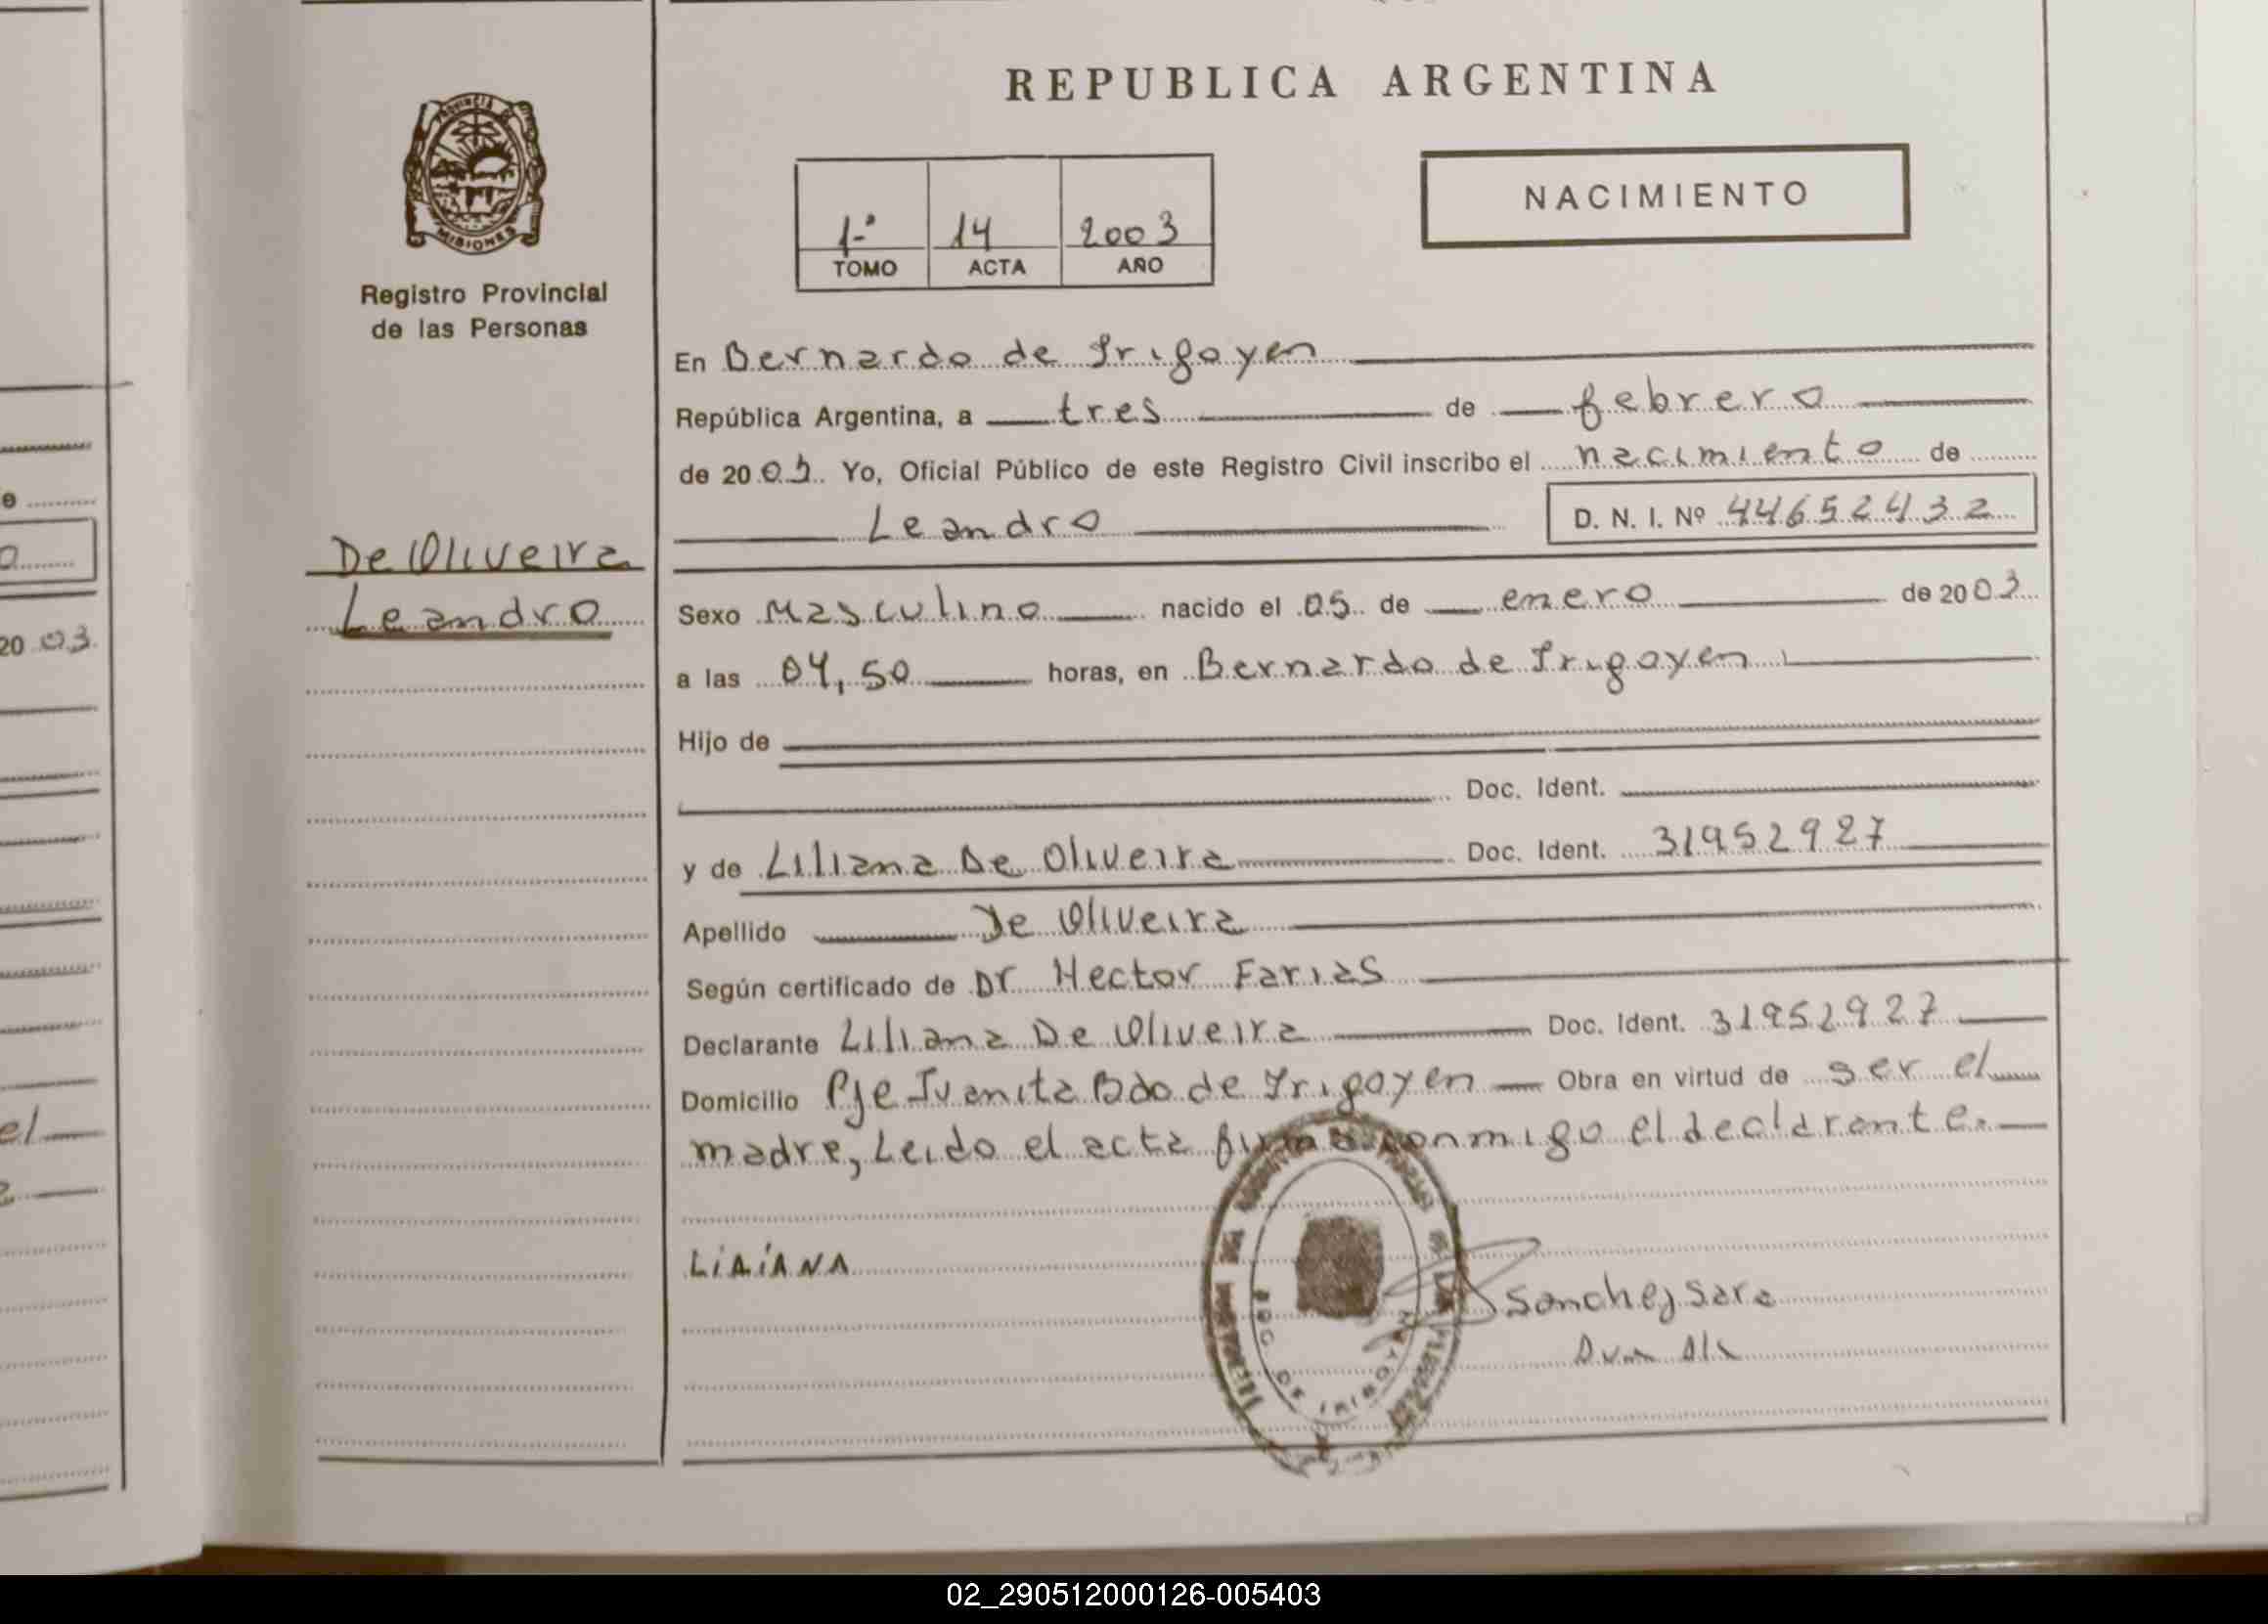 REPUBLICA ARGENTINA
PROVINCIA DE
MISIONES
Registro Provincial
de las Personas
1.ª 14 2003
TOMO ACTA AÑO
NACIMIENTO
En Bernardo de Irigoyen
República Argentina, a tres de febrero
de 2003. Yo, Oficial Público de este Registro Civil inscribo el nacimiento de
Leandro D. N. I. Nº 44652432
De Oliveira
Leandro
Sexo Masculino nacido el 05 de enero de 2003
a las 04,50 horas, en Bernardo de Irigoyen
Hijo de
Doc. Ident.
y de Liliana De Oliveira Doc. Ident. 31952927
Apellido De Oliveira
Según certificado de Dr Hector Farias
Declarante Liliana De Oliveira Doc. Ident. 31952927
Domicilio Pje Juanita Bdo de Irigoyen Obra en virtud de ser el
madre, Leido el acta firma conmigo el declarante.
LIAÍANA
Sanchez Sara
BDO DE IRIGOYEN
e
20 03
el
02_290512000126-005403